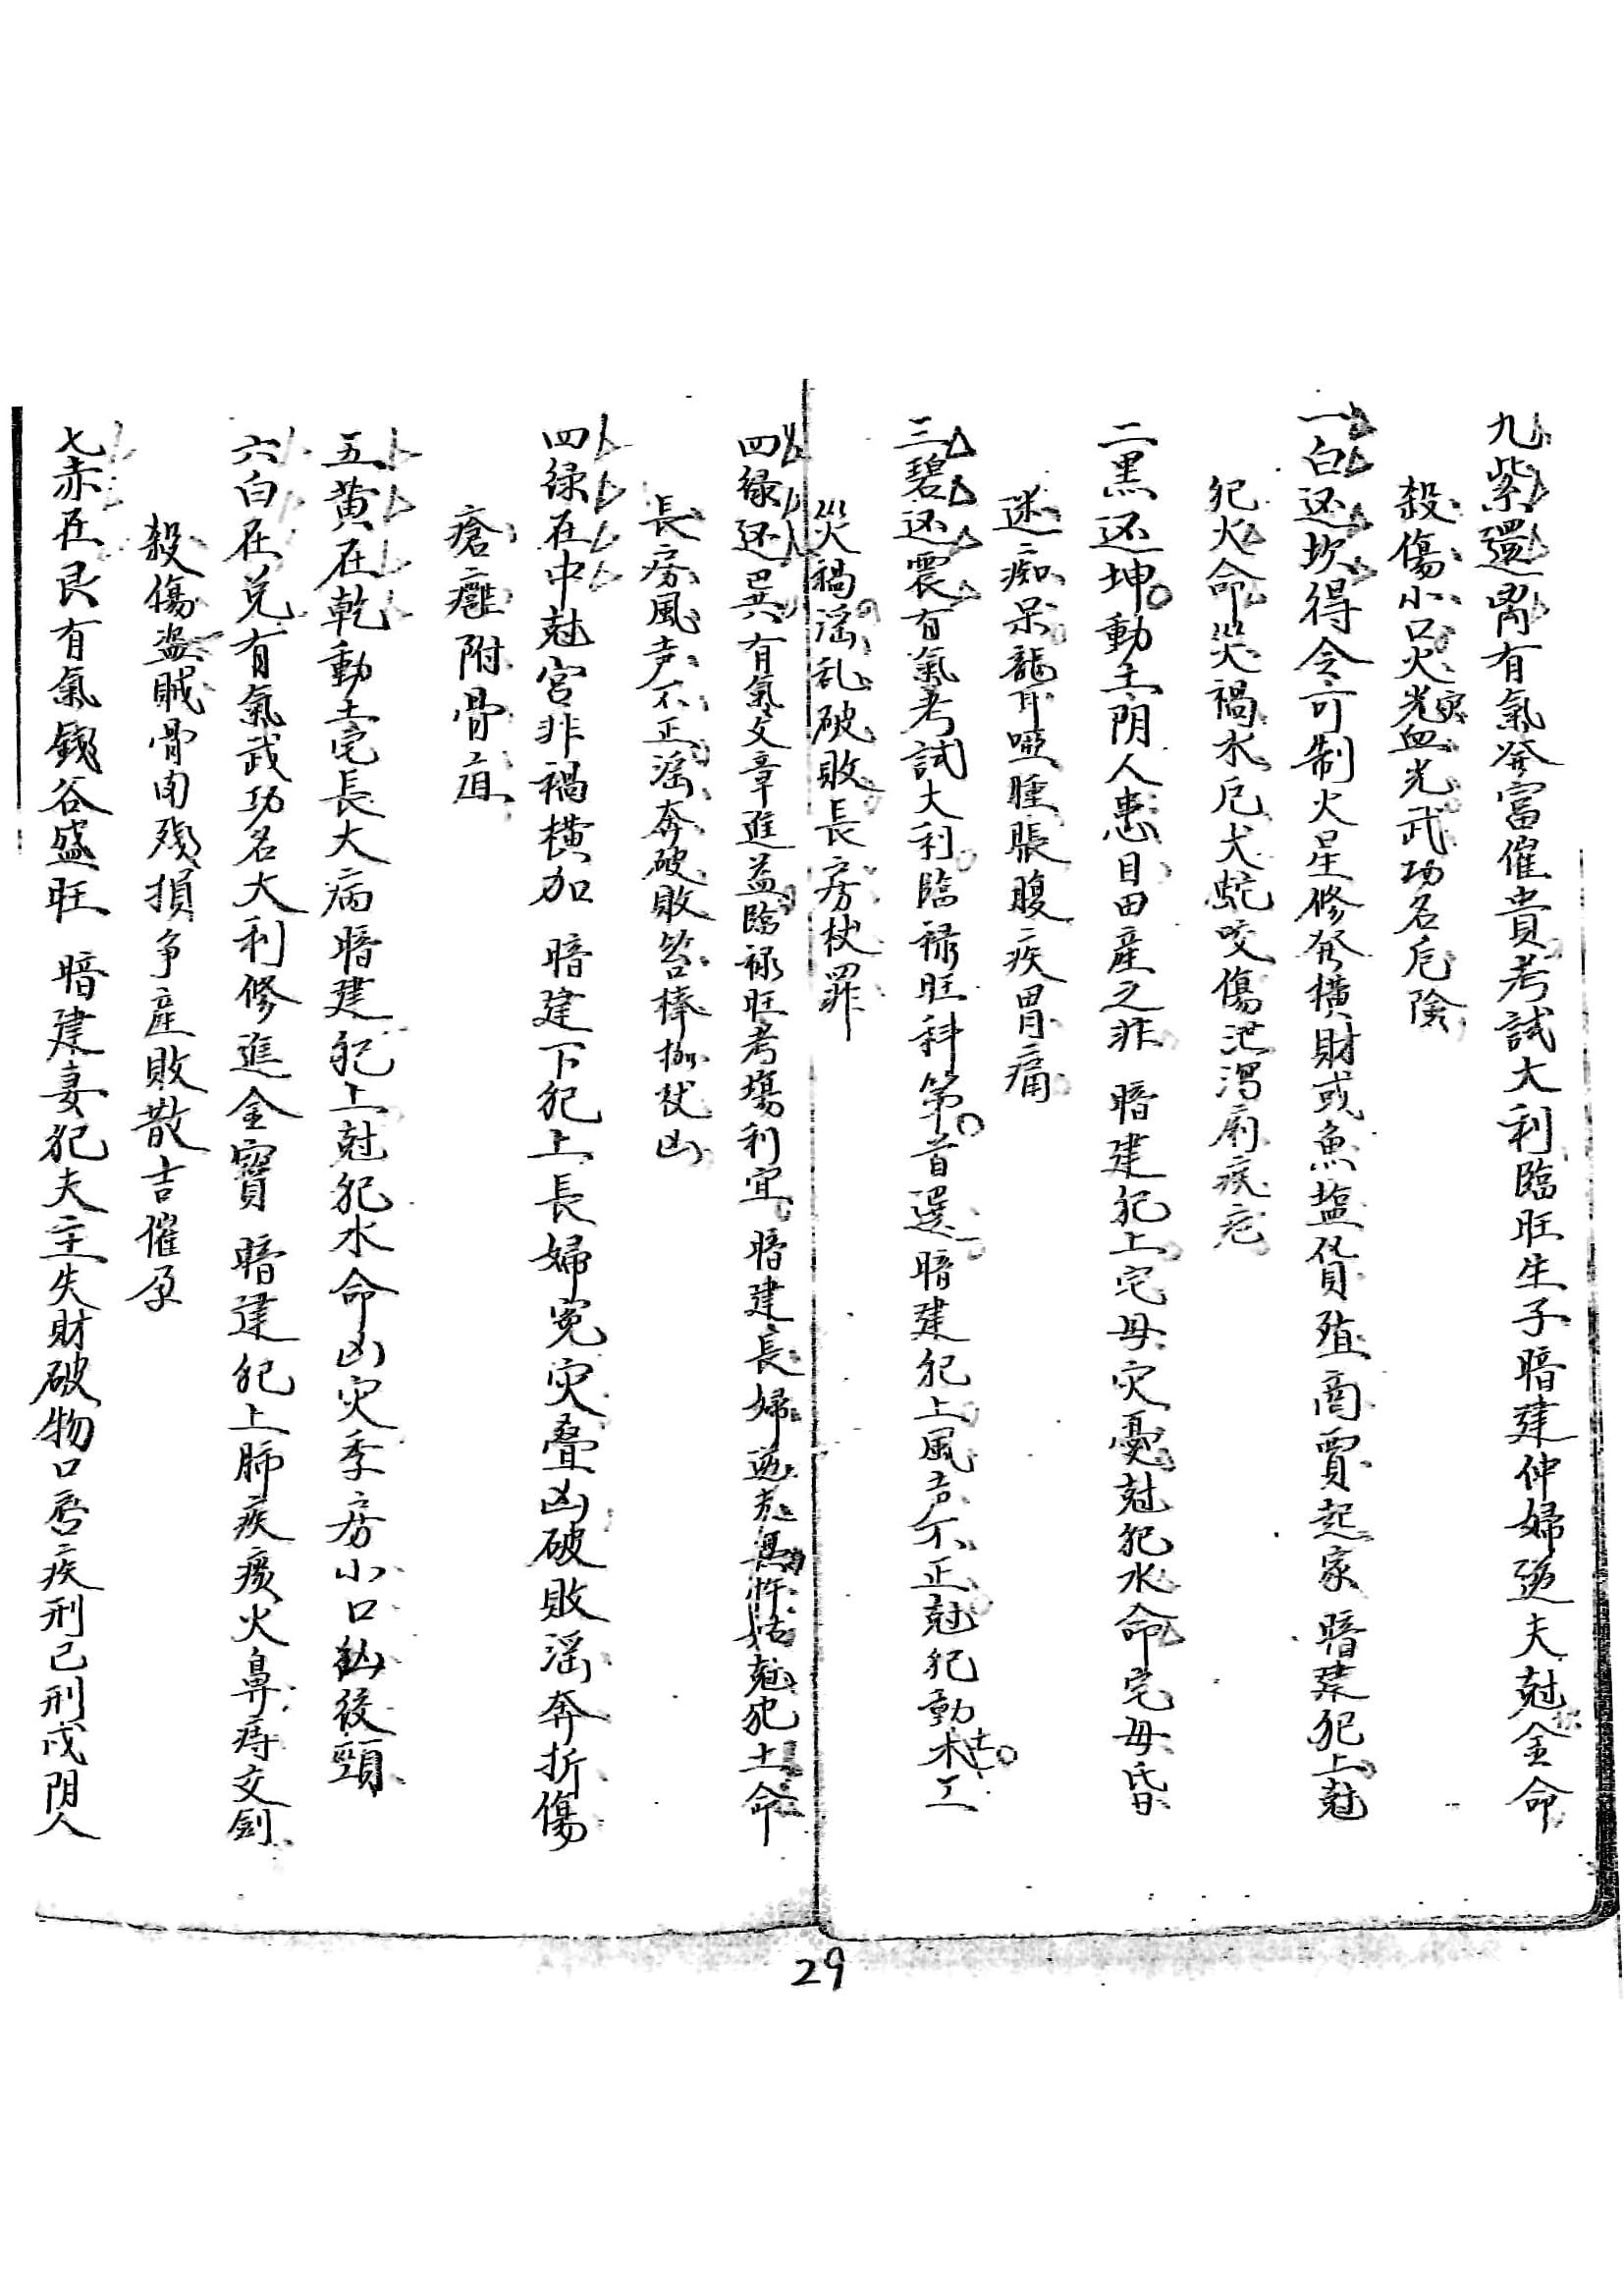 九紫還离有氣発富催貴考試大利臨旺生子暗建仲婦逆夫尅金命
殺傷小口火災血光武功名危險
一白还坎得令可制火星修発横財或魚塩貨殖商賈起家暗建犯上尅
犯火命災禍水厄犬蛇咬傷泄瀉痢疾
二黑还坤動土阴人患目田産之非 暗建犯上宅母灾憂尅犯水命宅母昏
迷痴呆聾耳啞腫脹腹疾胃痛
三碧还震有氣考試大利臨禄旺科第首選暗建犯上風声不正尅犯動木工
災禍淫乱破敗長房杖罪
四緑还巽有氣文章進益臨禄旺考塲利宜 暗建長婦逆忤姑尅犯土命
長房風声不正淫奔破敗笞棒枷杖凶
四緑在中尅宮非禍横加 暗建下犯上長婦冤灾叠凶破敗淫奔折傷
瘡癰附骨疽
五黄在乾動土宅長大病暗建犯上尅犯水命凶灾季房小口後頸
六白在兑有氣武功名大利修進金寶 暗建犯上肺疾痰火鼻痔交劍
殺傷盗賊骨肉残損争産敗散吉催孕
七赤在艮有氣錢谷盛旺 暗建妻犯夫主失財破物口唇疾刑己刑戌阴人
29